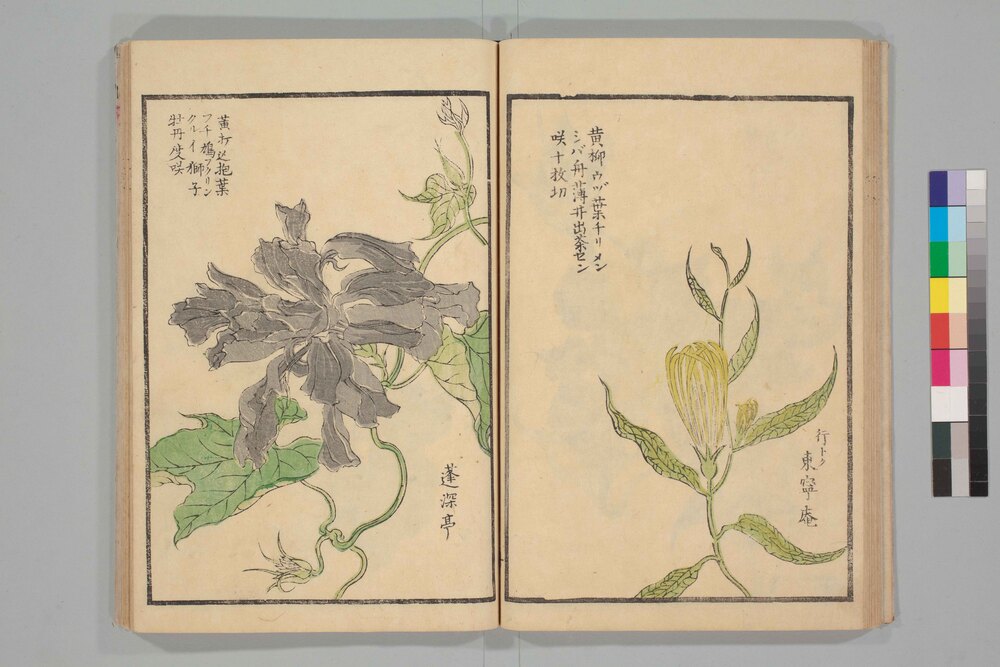 黄柳ウヅ葉チリメン
シバ舟薄丼出茶セン
咲十枚切
行トク
東寧庵
黄打込抱葉
フチ鳩フクリン
クルイ獅子
牡丹度咲
蓬深亭